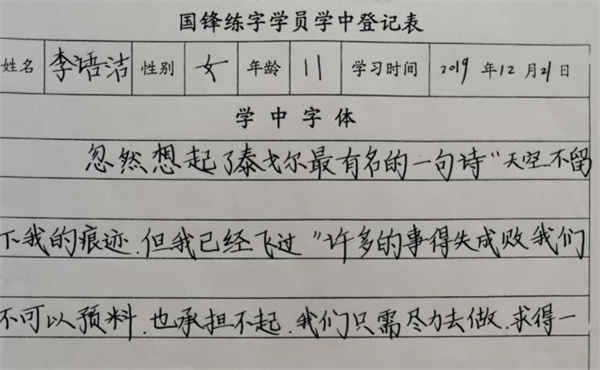 国锋练字学员学中登记表
姓名 李语洁 性别 女 年龄 11 学习时间 2019 年 12 月 21 日
学中字体
忽然想起了泰戈尔最有名的一句诗“天空.不留
下我的痕迹.但我已经飞过”许多的事得失成败我们
不可以预料.也承担不起.我们只需尽力去做.求得一